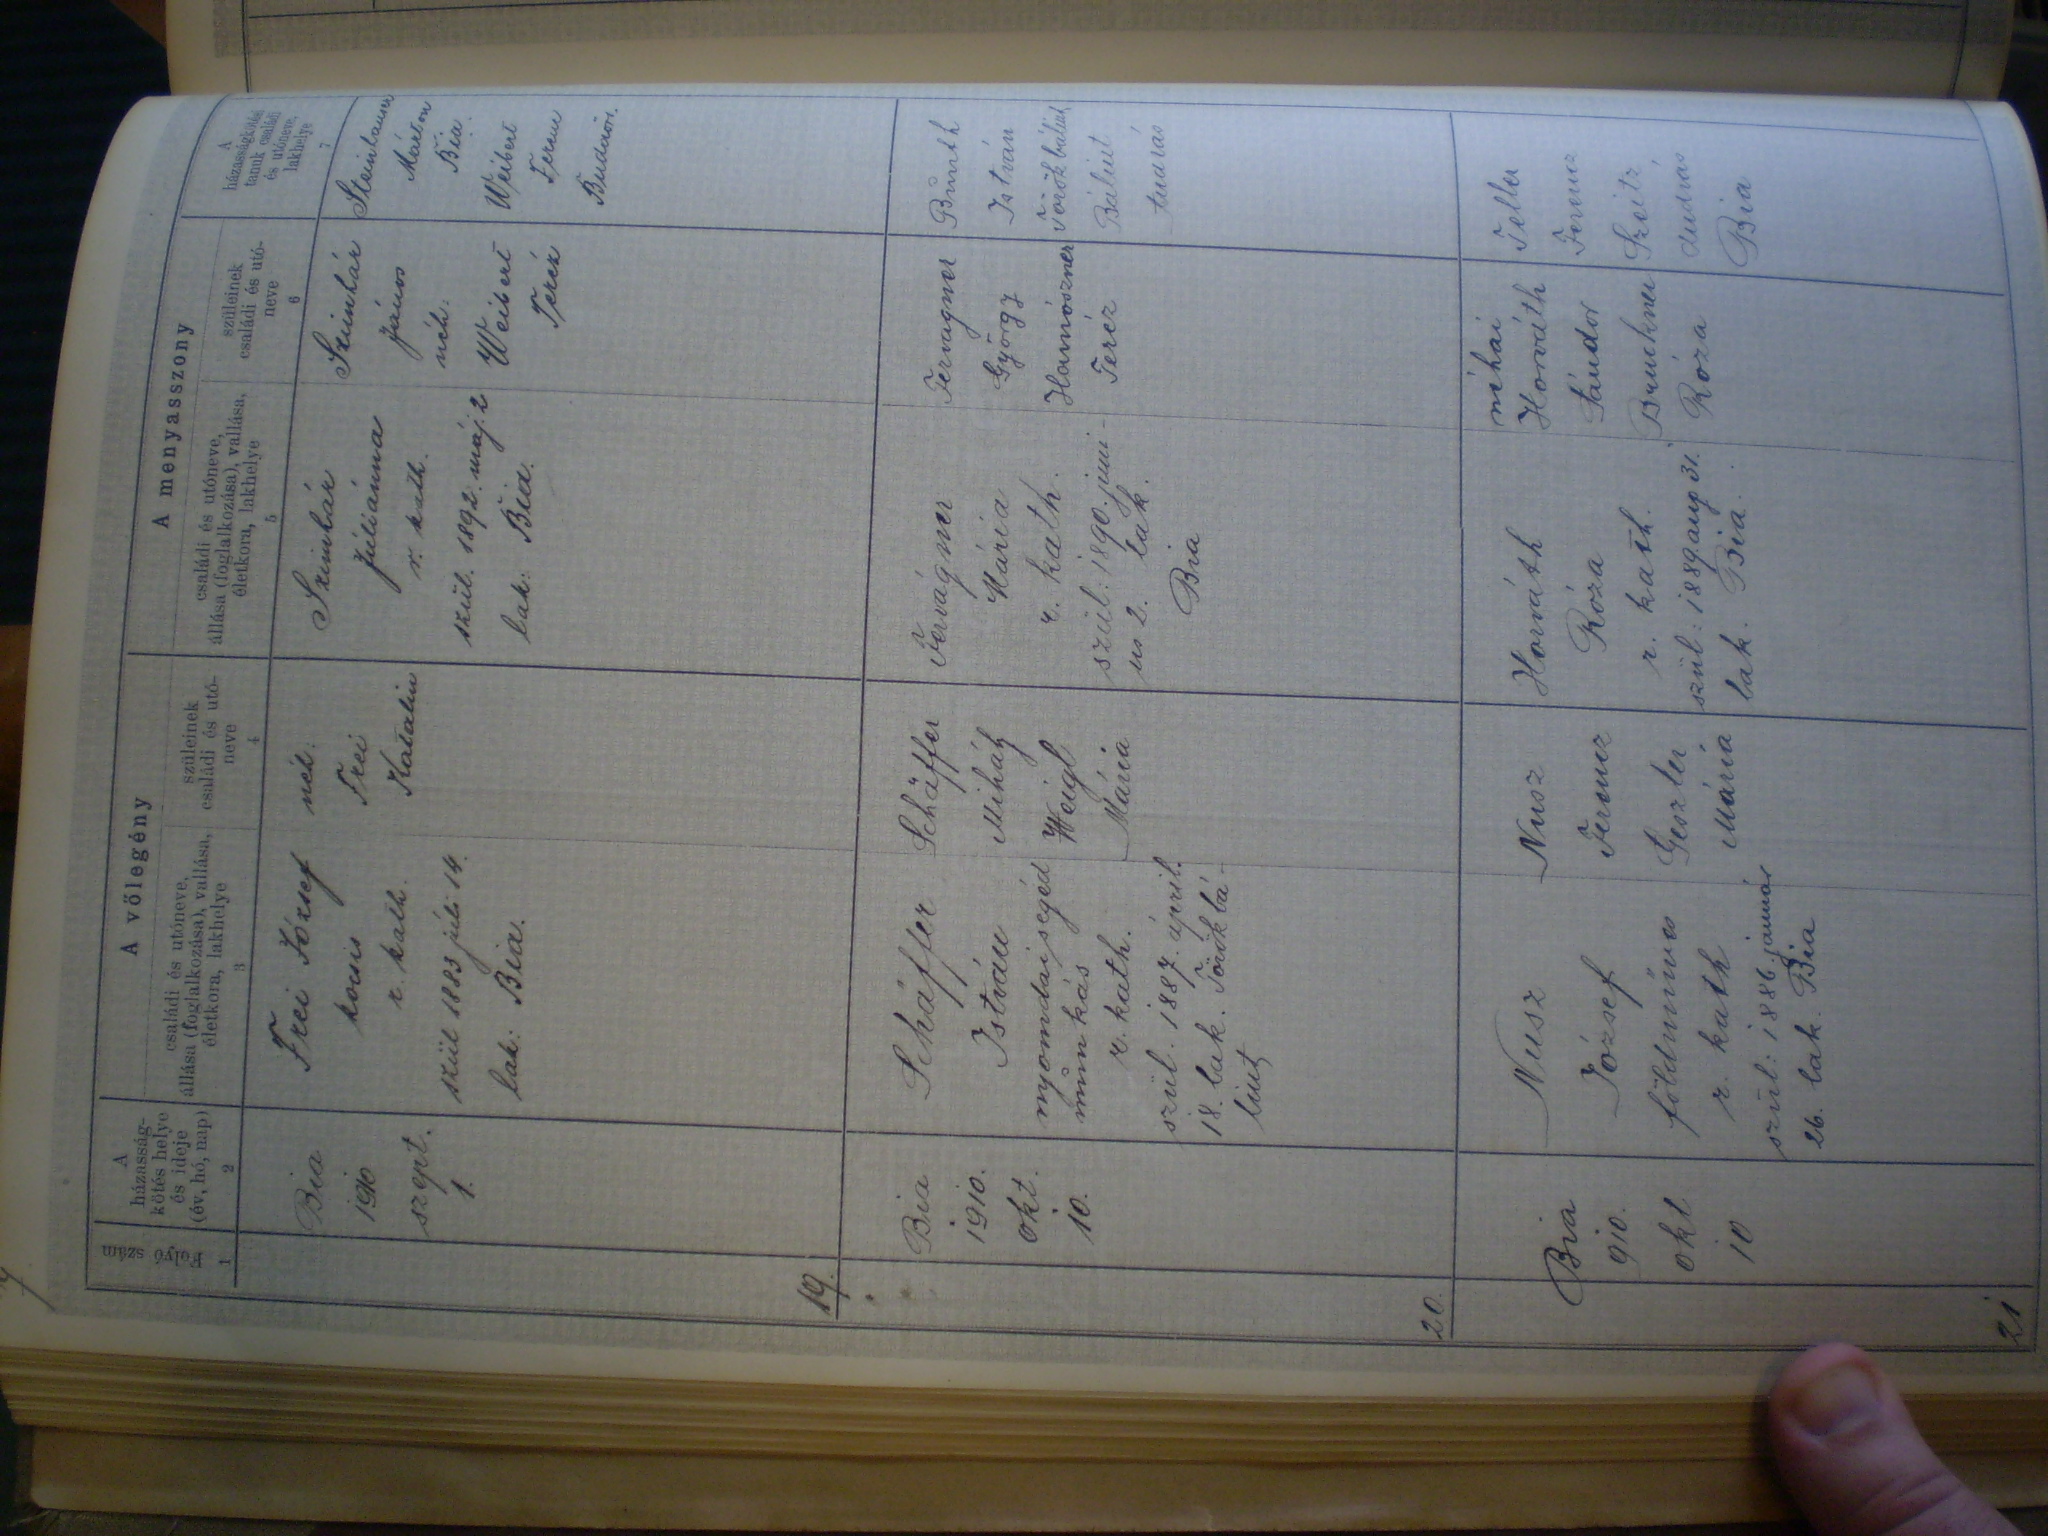 A vőlegény
A menyasszony
Folyó szám
1
A
házasság-
kötés helye
és ideje
(év, hó, nap)
2
családi és utóneve,
állása (foglalkozása), vallása,
életkora, lakhelye
3
szüleinek
családi és utó-
neve
4
családi és utóneve,
állása (foglalkozása), vallása,
életkora, lakhelye
5
szüleinek
családi és utó-
neve
6
A
házasságkötési
tanuk családi
és utóneve,
lakhelye
7
19.
Bia
1910
szept.
1.
Frei József
kocsis
r. kath.
szül 1883 júli 14.
lak: Bia.
néh.
Frei
Katalin
Szinhár
Juliánna
r. kath.
szül. 1892. máj. 2
lak: Bia.
Szinhár
János
néh.
Weibert
Teréz
Steinhauser
Márton
Bia.
Weibert
Ferenc
Budaörs.
20.
Bia
1910.
okt.
10.
Schäffer
István
nyomdai segéd
munkás
r. kath.
szül. 1887. ápril.
18. lak. Törökbá-
lint
Schäffer
Mihály
Weigl
Mária
Fervágner
Mária
r. kath.
szül: 1890. juni-
us 2. lak.
Bia
Fervagner
György
Teréz
István
Törökbálint
Bálint
21
Bia
910.
okt
10
Nusz
József
földműves
r. kath
szül: 1886. január
26. lak. Bia
Nusz
Ferenc
Geszler
Mária
Horváth
Róza
r. kath.
szül: 1889. aug 31.
lak. Bia.
néhai
Horváth
Sándor
Bruckner
Róza
Teller
Ferenc
András
Bia